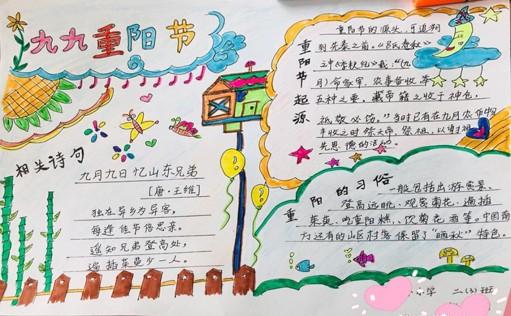 九九重阳节
相关诗句
九月九日忆山东兄弟
[唐·王维]
独在异乡为异客,
每逢佳节倍思亲。
遥知兄弟登高处,
遍插茱萸少一人。
重阳节起源
重阳节的源头,可追溯
到先秦之前。《吕氏春秋》
之中《季秋纪》载:“(九
月)命家宰,农事备收,举
五种之要。藏帝籍之收于神仓,
祗敬必饬。”当时已有在九月农作物
丰收之时祭天帝、祭祖,以谢
先恩德的活动。
重阳的习俗
一般包括出游赏景、
登高远眺、观赏菊花、遍插
茱萸、吃重阳糕、饮菊花酒等。中国南
方还有的山区村落保留了“晒秋”特色。
小学 二(3)班